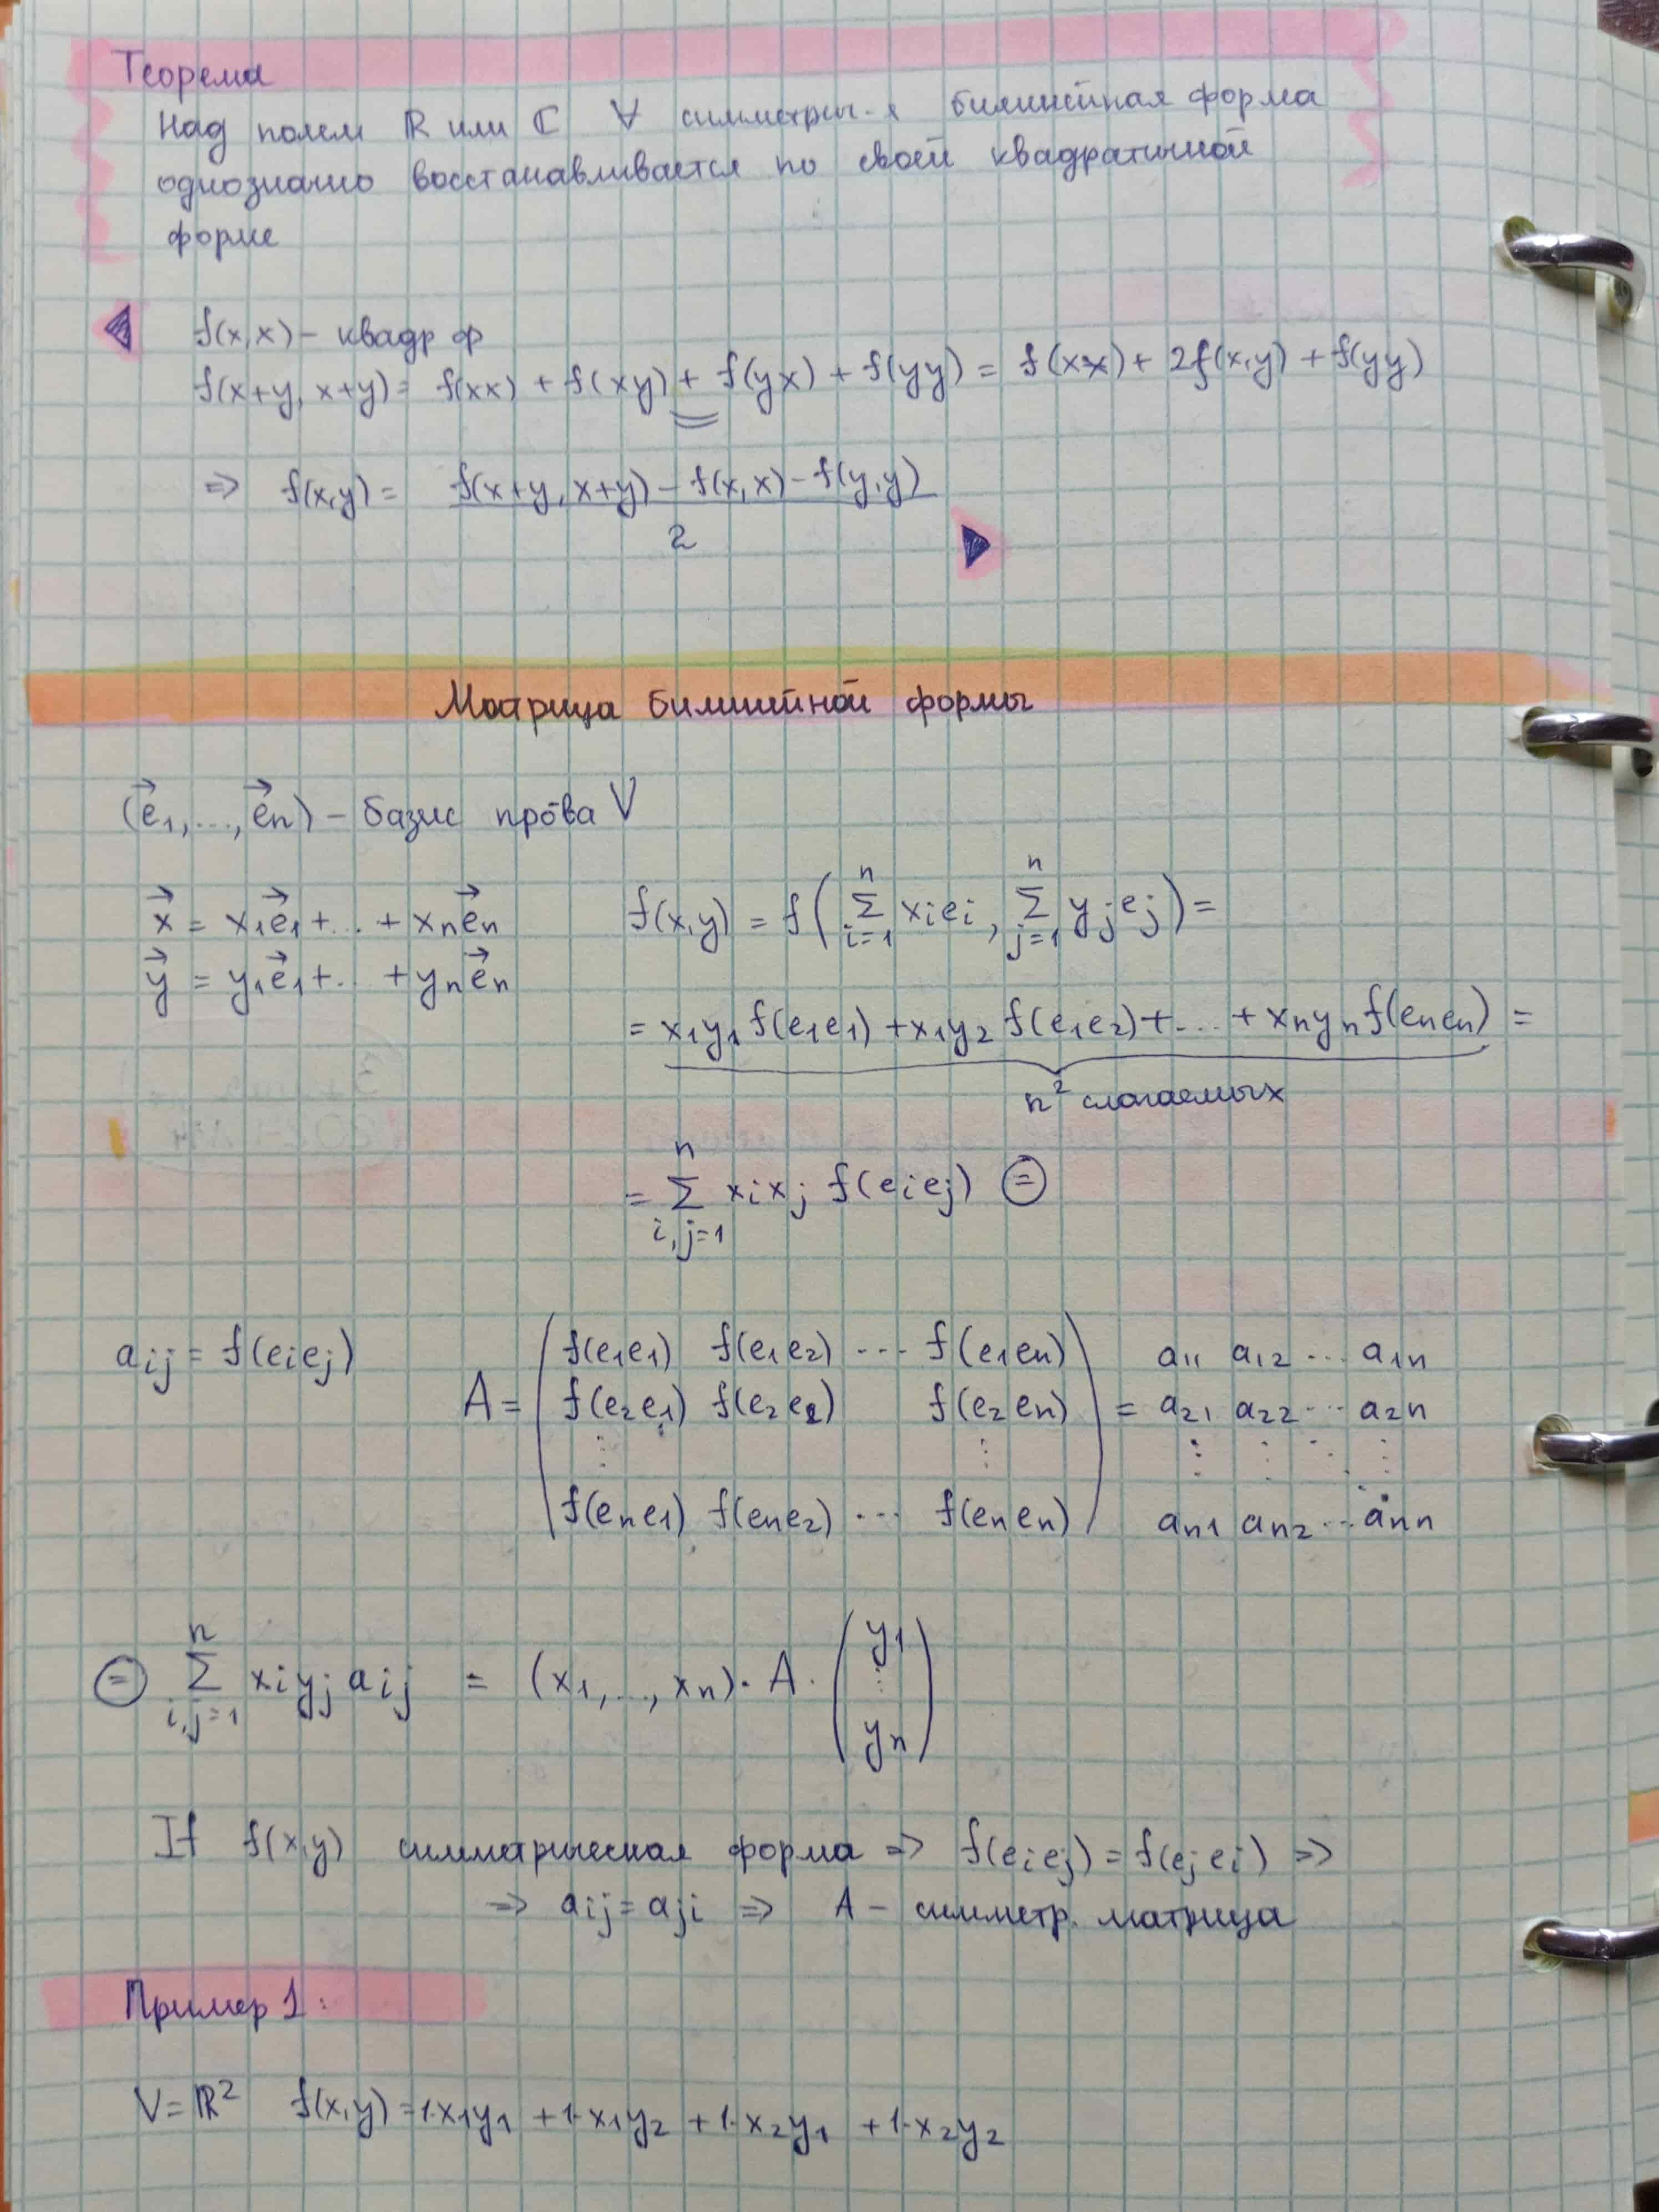 Теорема
Над полем ℝ или ℂ ∀ симметри-я билинейная форма
однозначно восстанавливается по своей квадратичной
форме
f(x,x) – квадр ф
f(x+y, x+y) = f(xx) + f(xy) + f(yx) + f(yy) = f(xx) + 2f(x,y) + f(yy)
⇒ f(x,y) = (f(x+y, x+y) – f(x,x) – f(y,y)) / 2
Матрица билинейной формы
(e⃗₁,...,e⃗n) – базис пр-ва V
x⃗ = x₁e⃗₁+...+xne⃗n
y⃗ = y₁e⃗₁+..+yne⃗n
f(x,y) = f(∑ⁿᵢ₌₁ xᵢeᵢ, ∑ⁿⱼ₌₁ yⱼeⱼ) =
= x₁y₁ f(e₁e₁) + x₁y₂ f(e₁e₂) + ... + xnyn f(enen) =
n² слагаемых
= ∑ⁿᵢ,ⱼ₌₁ xᵢxⱼ f(eᵢeⱼ) ⊜
aᵢⱼ = f(eᵢeⱼ)
A =
f(e₁e₁) f(e₁e₂) ... f(e₁en) a₁₁ a₁₂ ... a₁n
f(e₂e₁) f(e₂e₂) f(e₂en) = a₂₁ a₂₂ ... a₂n
⋮ ⋮ ⋮ ⋮ ⋱ ⋮
f(ene₁) f(ene₂) ... f(enen) an₁ an₂ ... ann
⊜ ∑ⁿᵢ,ⱼ₌₁ xᵢyⱼaᵢⱼ = (x₁,...,xn)·A·(y₁ ⋮ yn)
If f(x,y) симметрическая форма ⇒ f(eᵢeⱼ) = f(eⱼeᵢ) ⇒
⇒ aᵢⱼ = aⱼᵢ ⇒ A – симметр. матрица
Пример 1:
V = ℝ² f(x,y) = 1·x₁y₁ + 1·x₁y₂ + 1·x₂y₁ + 1·x₂y₂